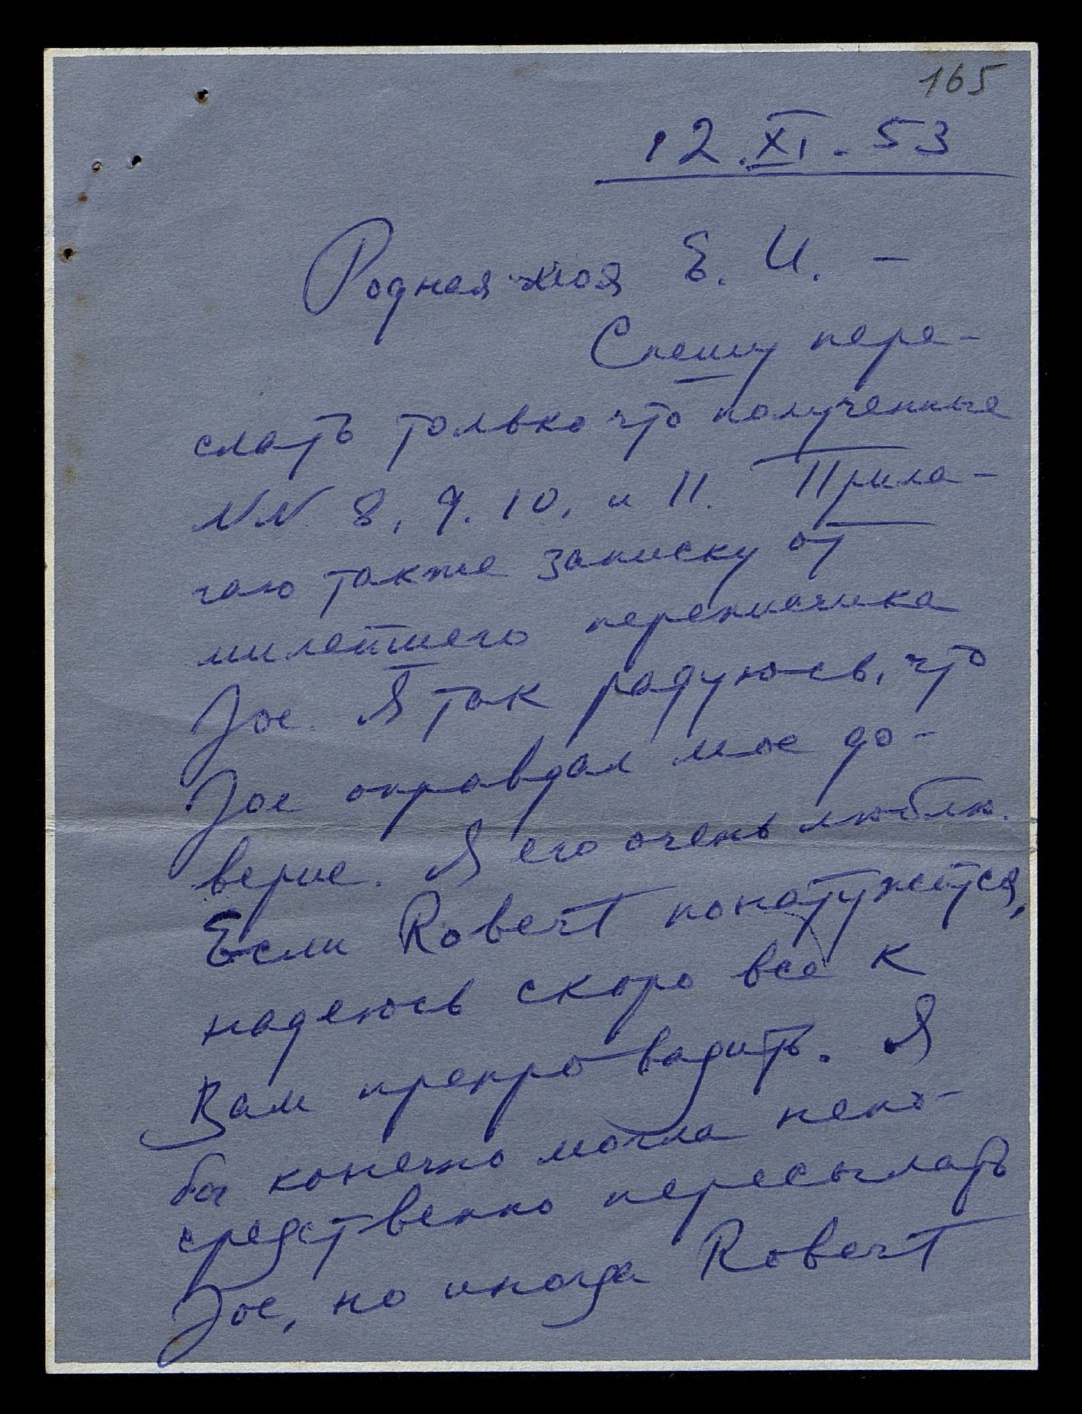 165
12.XI.53
Родная моя Е. И. –
Спешу пере-
слать только что полученные
NN 8, 9. 10, и 11. Прила-
гаю также записку от
милейшего переписчика
Joe. Я так радуюсь, что
Joe оправдал мое до-
верие. Я его очень люблю.
Если Robert понатужется,
надеюсь скоро все к
Вам препроводить. Я
бы конечно могла непо-
средственно пересылать
Joe, но иногда Robert